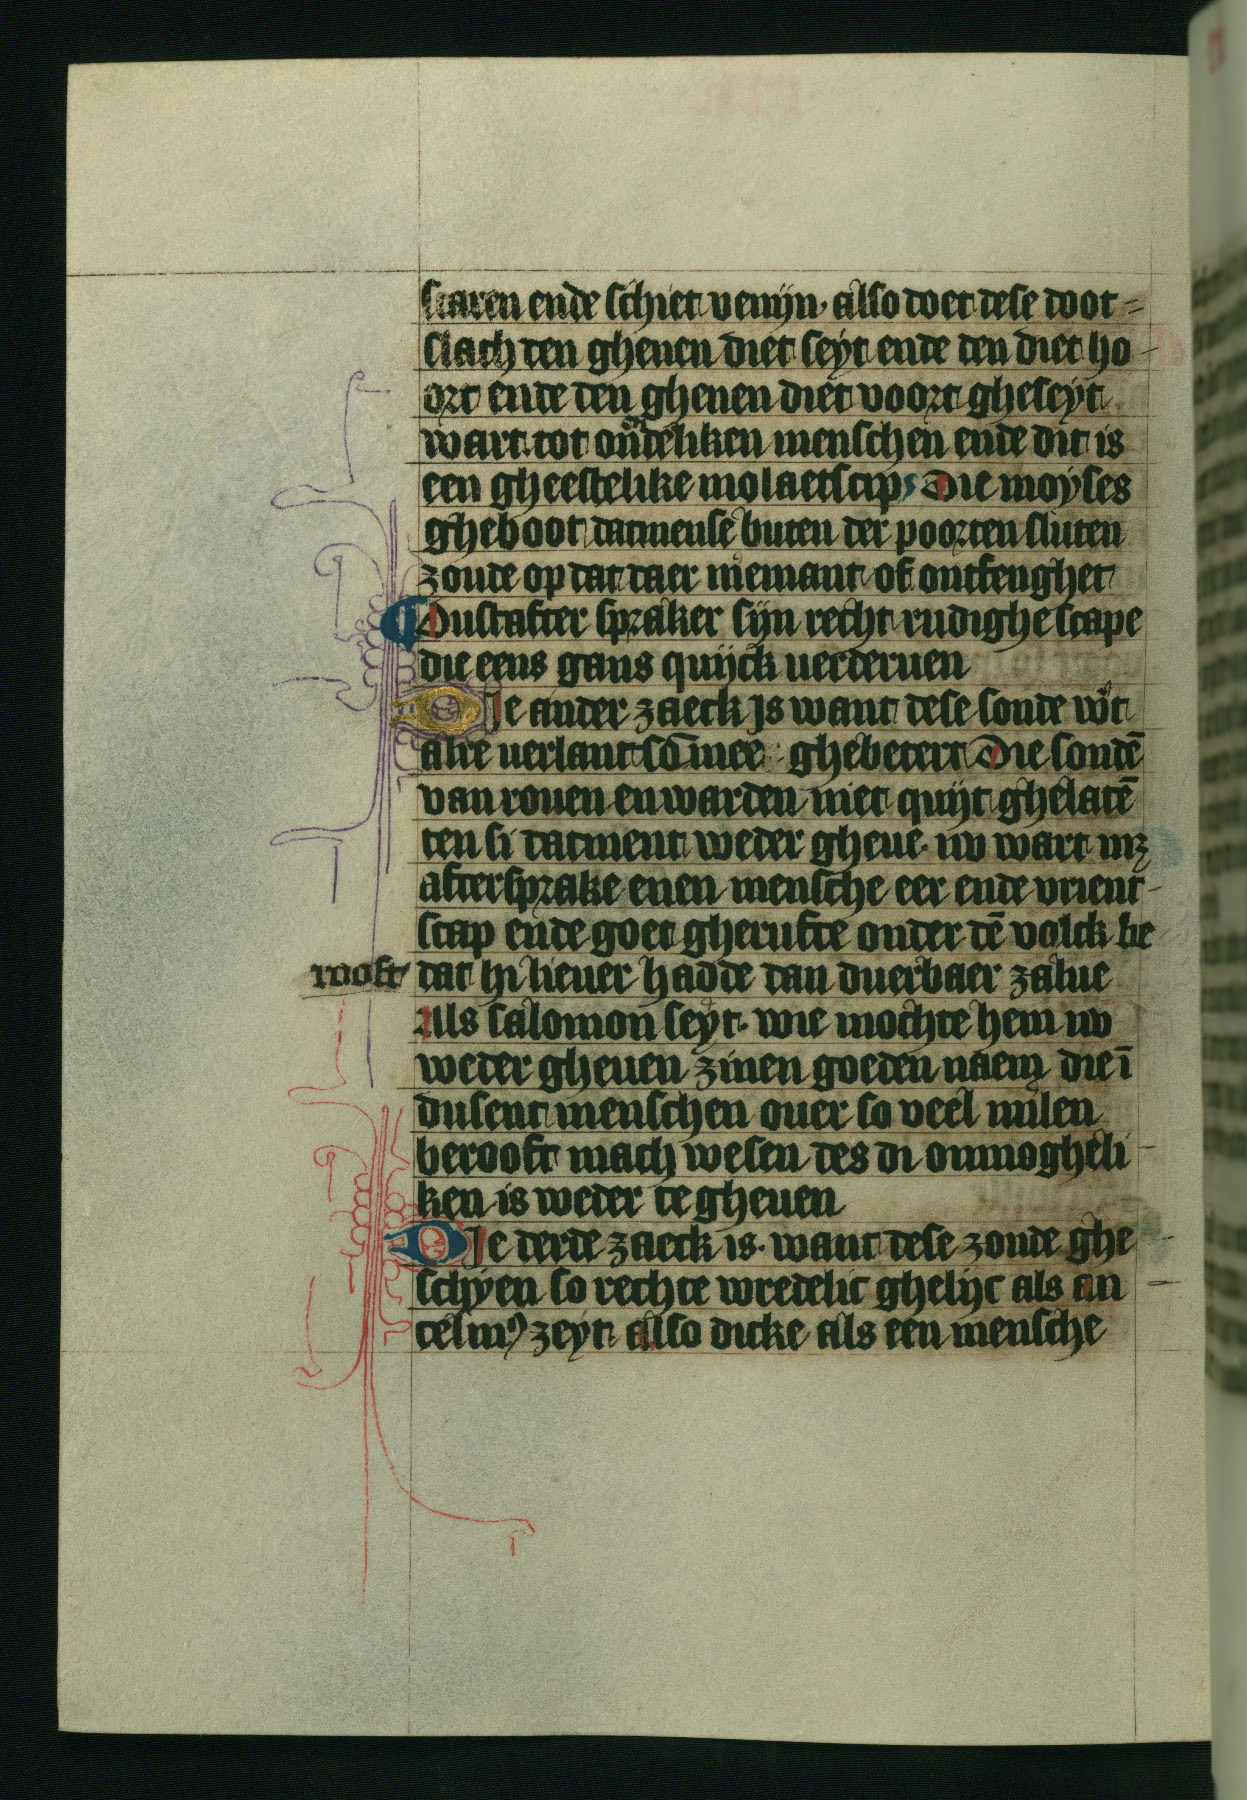 staren ende schiet venijn· also doet dese doot=
slach den ghenen diet seyt ende den diet ho-
ort ende den ghenen diet voort gheseyt
wart tot onêdeliken menschen ende dit is
een gheestelike molaetscip Die moyses
gheboot datmense buten der poorten sluten
zoude op dat daer niemant of ontfenghet
Dus tafter spraker sijn recht rudighe scape
die eens gans quijck verderuen
DIe ander zaeck Is want dese sonde wͦt
alre verlanct sōmee ghebetert Die sondē
van rouen en warden niet quijt ghelatē
ten si datment weder gheue· nv wart mꝫ
aftersprake enen mensche eer ende vrient-
scap ende goet gherufte onder dē volck be
rooft dat hi lieuer hadde dan duerbaer zalue
Als salomon seyt· wie mochte hem nv
weder gheuen zinen goeden naem die ī
dusent menschen ouer so veel milen
berooft mach wesen des di onmogheli-
ken is weder te gheuen
DIe derde zaeck is· want dese zonde ghe-
schyen so rechte wredelic ghelijc als an-
celmꝰ zeyt also dicke als een mensche